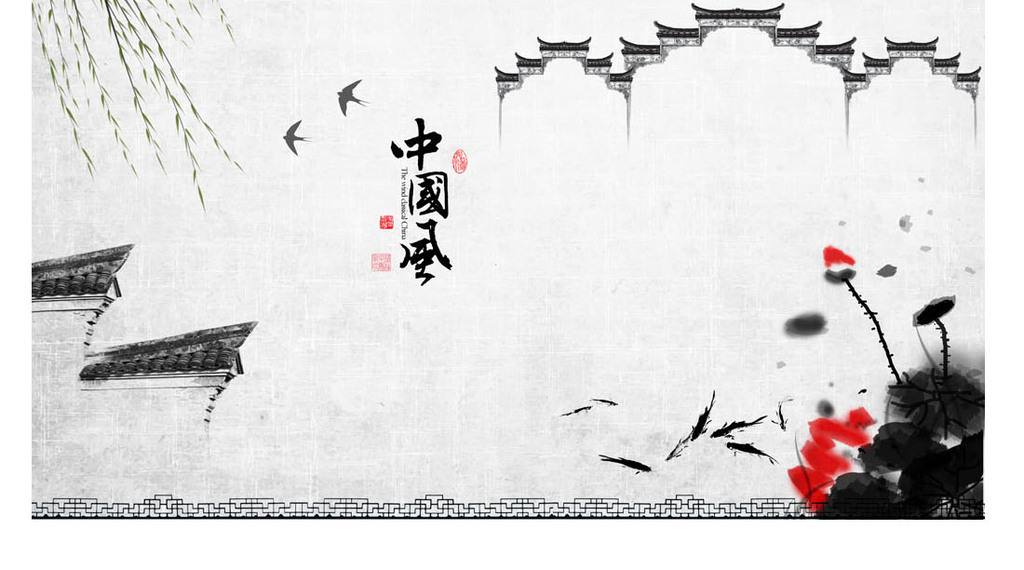 中國風
The wind classical China